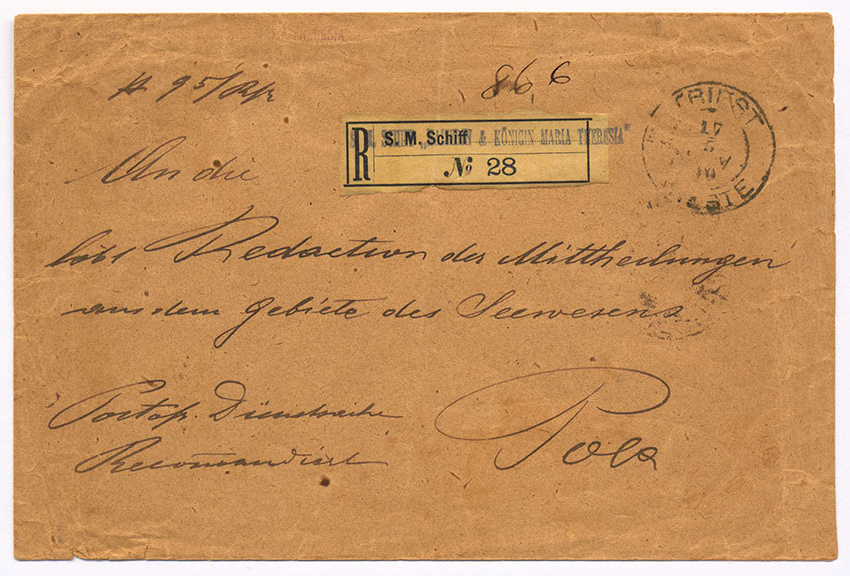 866
R
S. M. Schiff & KÖNIGIN MARIA THERESIA"
№ 28
TRIEST
17
5
TRIESTE
An die
löbl Redaction der Mittheilungen
aus dem Gebiete des Seewesens
Portofr. Dienstsache
Recomandirt
Pola